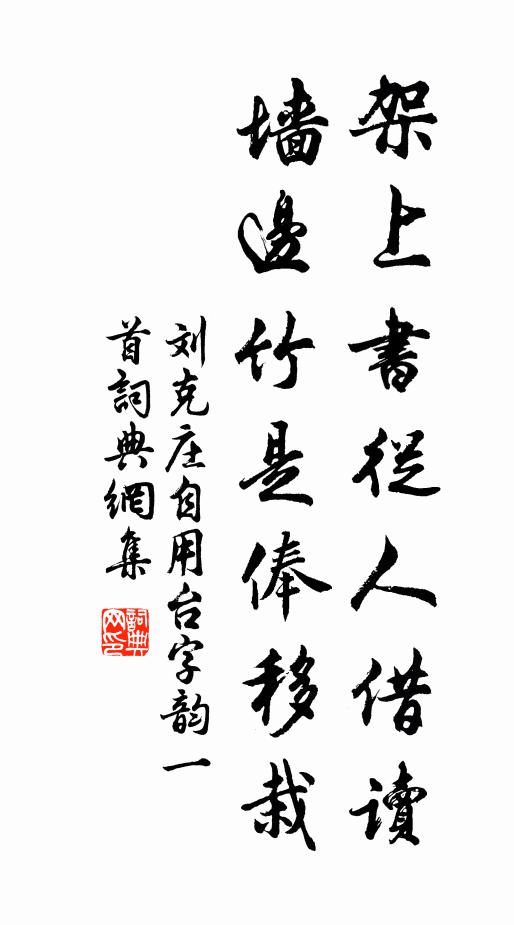 架上書從人借讀
墻邊竹是俸移栽
刘克庄自用台字韵一
首詞典網集
詞典網印